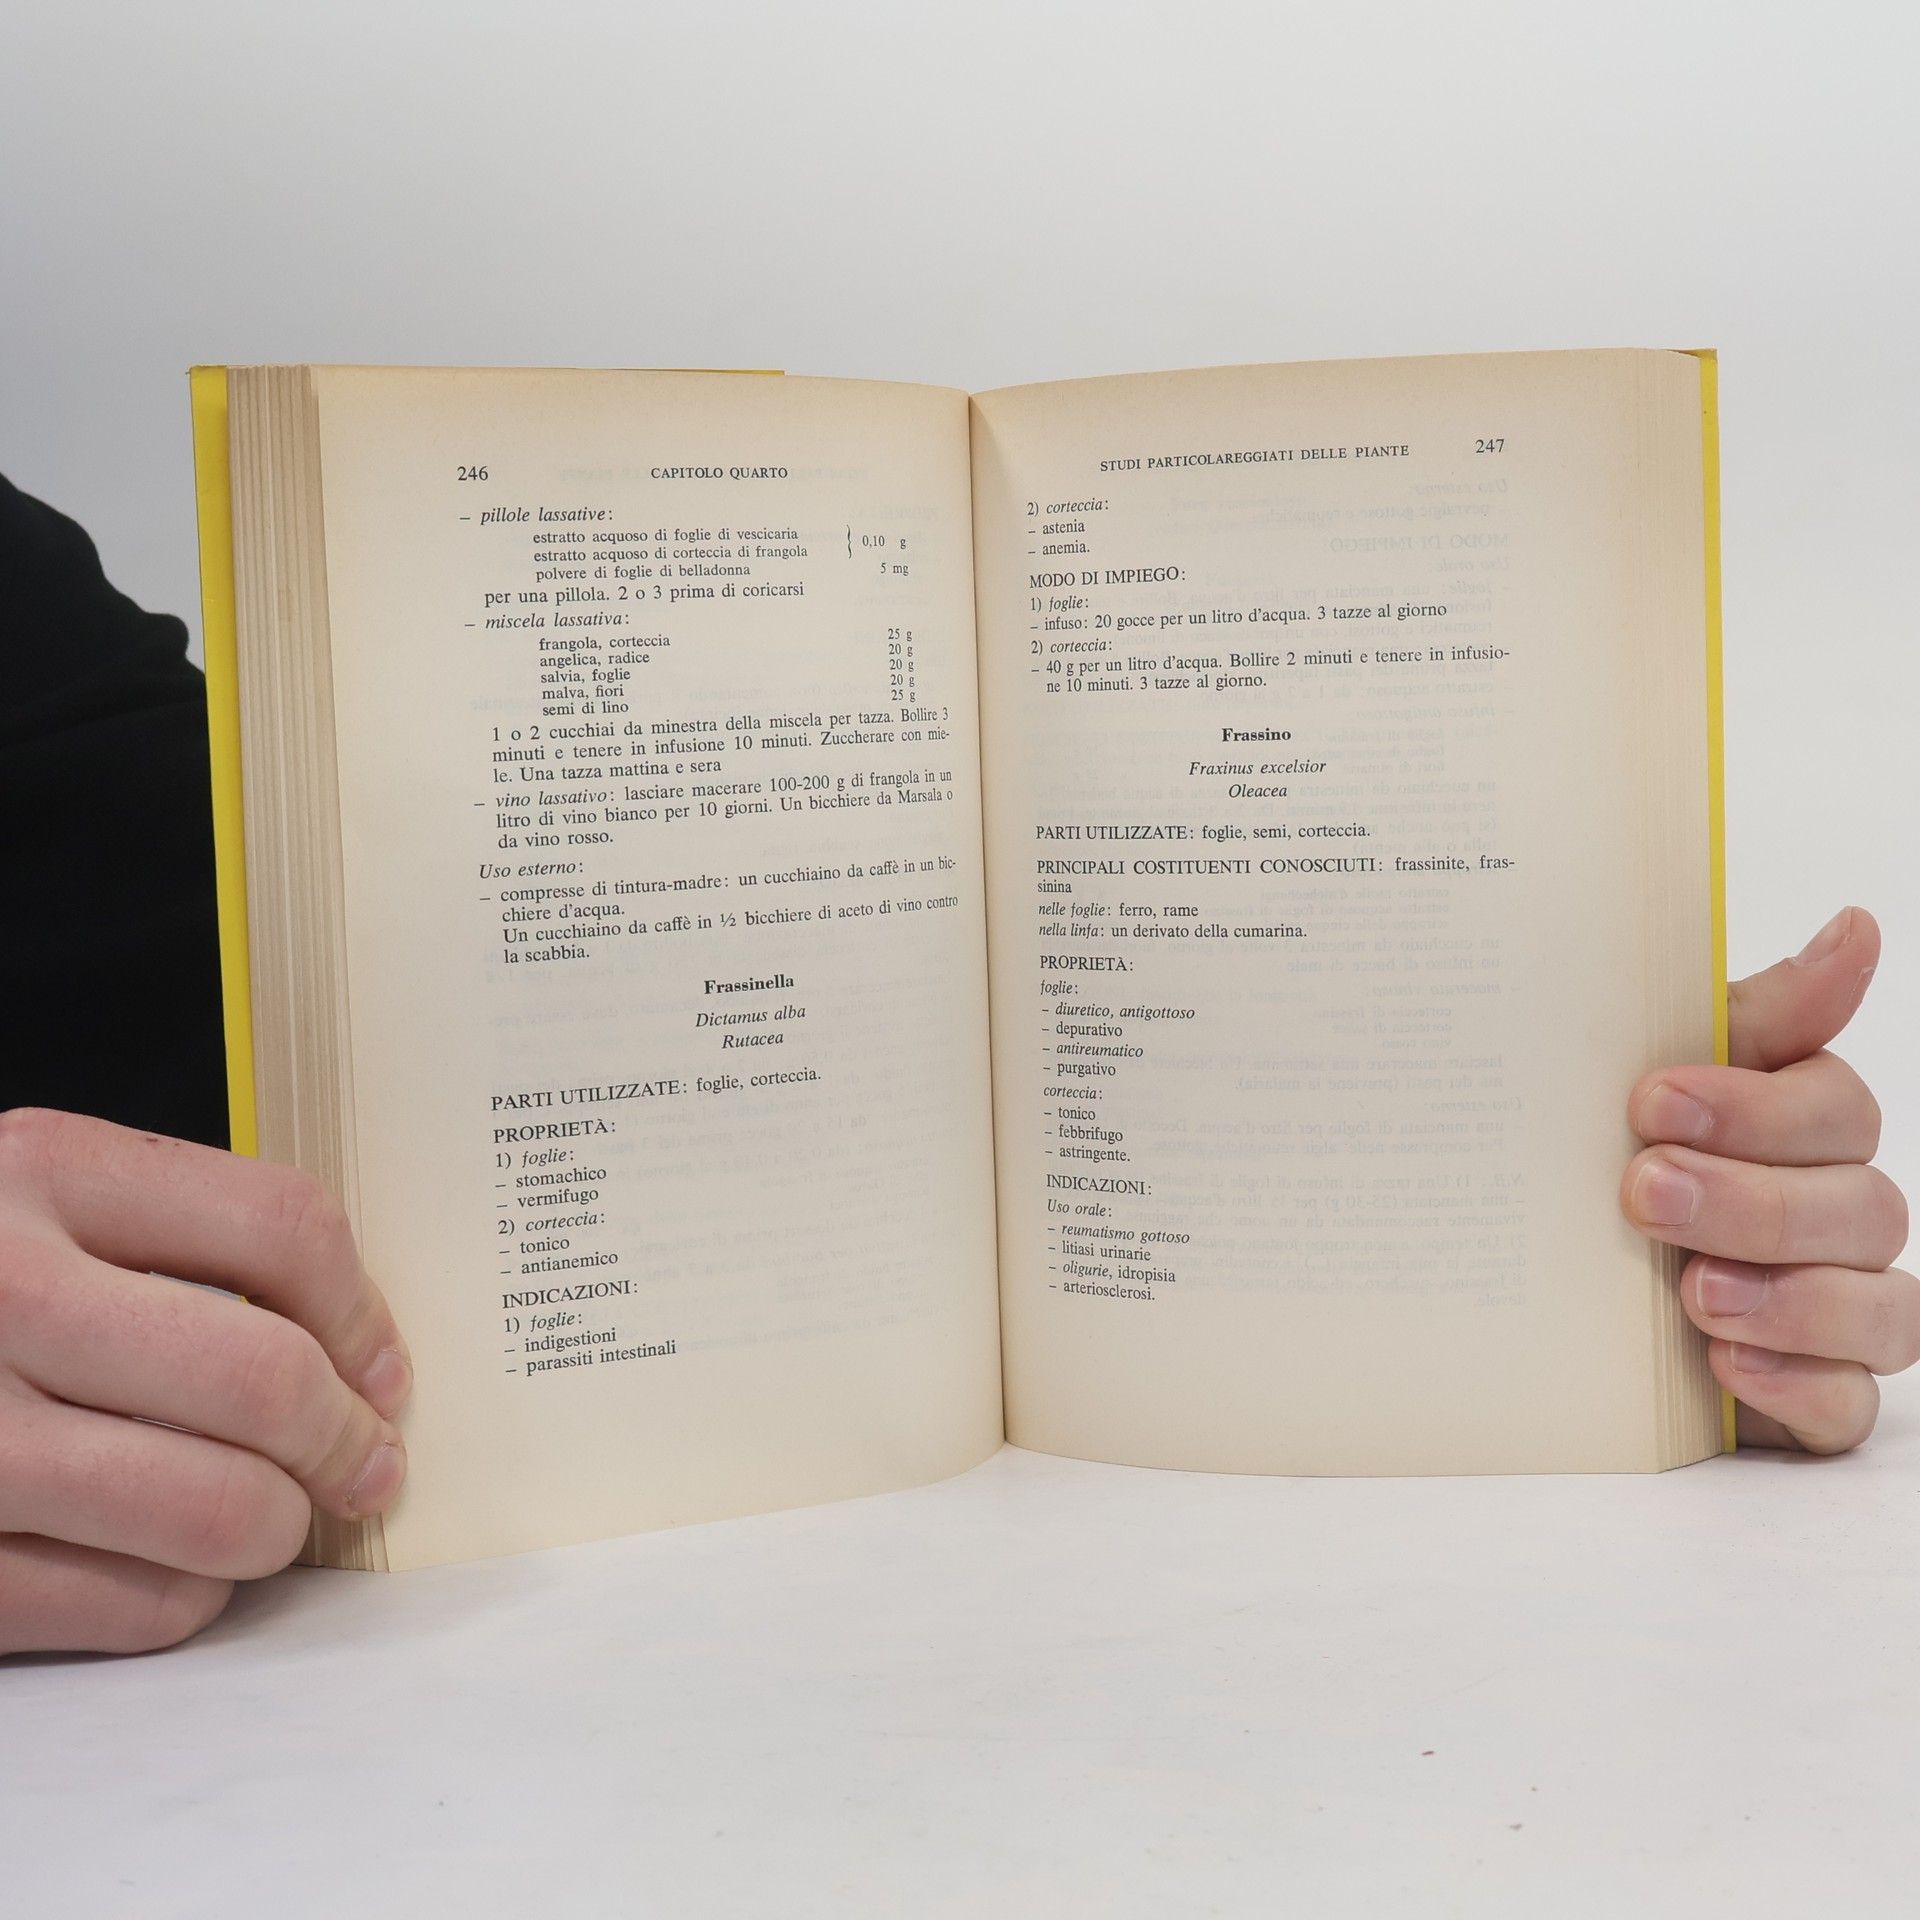 246 CAPITOLO QUARTO
– pillole lassative:
estratto acquoso di foglie di vescicaria
estratto acquoso di corteccia di frangola } 0,10 g
polvere di foglie di belladonna 5 mg
per una pillola. 2 o 3 prima di coricarsi
– miscela lassativa:
frangola, corteccia 25 g
angelica, radice 20 g
salvia, foglie 20 g
malva, fiori 20 g
semi di lino 25 g
1 o 2 cucchiai da minestra della miscela per tazza. Bollire 3
minuti e tenere in infusione 10 minuti. Zuccherare con mie-
le. Una tazza mattina e sera
– vino lassativo: lasciare macerare 100-200 g di frangola in un
litro di vino bianco per 10 giorni. Un bicchiere da Marsala o
da vino rosso.
Uso esterno:
– compresse di tintura-madre: un cucchiaino da caffè in un bic-
chiere d'acqua.
Un cucchiaino da caffè in ½ bicchiere di aceto di vino contro
la scabbia.
Frassinella
Dictamus alba
Rutacea
PARTI UTILIZZATE: foglie, corteccia.
PROPRIETÀ:
1) foglie:
– stomachico
– vermifugo
2) corteccia:
– tonico
– antianemico
INDICAZIONI:
1) foglie:
– indigestioni
– parassiti intestinali
STUDI PARTICOLAREGGIATI DELLE PIANTE 247
2) corteccia:
– astenia
– anemia.
MODO DI IMPIEGO:
1) foglie:
– infuso: 20 gocce per un litro d'acqua. 3 tazze al giorno
2) corteccia:
– 40 g per un litro d'acqua. Bollire 2 minuti e tenere in infusio-
ne 10 minuti. 3 tazze al giorno.
Frassino
Fraxinus excelsior
Oleacea
PARTI UTILIZZATE: foglie, semi, corteccia.
PRINCIPALI COSTITUENTI CONOSCIUTI: frassinite, fras-
sinina
nelle foglie: ferro, rame
nella linfa: un derivato della cumarina.
PROPRIETÀ:
foglie:
– diuretico, antigottoso
– depurativo
– antireumatico
– purgativo
corteccia:
– tonico
– febbrifugo
– astringente.
INDICAZIONI:
Uso orale:
– reumatismo gottoso
– litiasi urinarie
– oligurie, idropisia
– arteriosclerosi.